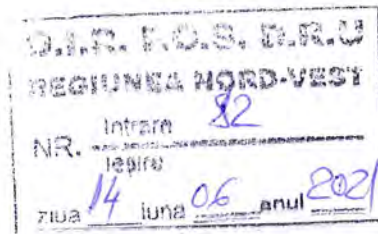 O.I.R. P.O.S. D.R.U
REGIUNEA NORD-VEST
Intrare 82
NR.
Ieşire
ziua 14 luna 06 anul 2021